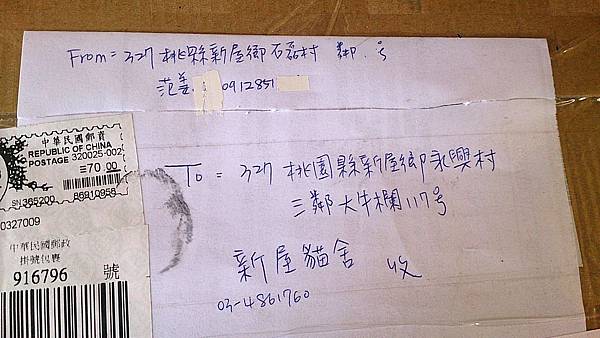 From = 327 桃縣新屋鄉石磊村 鄰 号
范姜 0912851
中華民國郵資
REPUBLIC OF CHINA
POSTAGE 320025-002
=70.00
SN365200 86910956
0327009
中華民國郵政
掛號包裹
916796 號
To = 327 桃園縣新屋鄉永興村
三鄰大牛欄117号
新屋貓舍 收
03-4861760